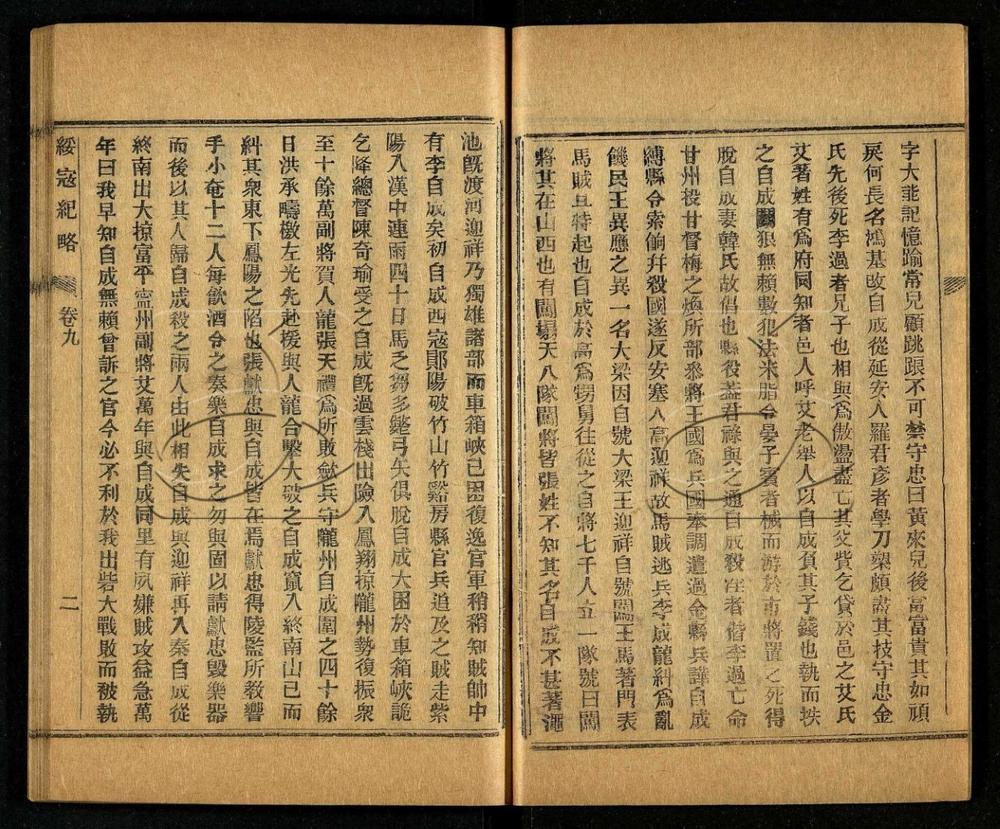 字大能記憶踰常兒顧跳踉不可禁守忠曰黃來兒後當富貴其如頑
戾何長名鴻基改自成從延安人羅君彥者學刀槊頗盡其技守忠金
氏先後死李過者兄子也相與爲傲盪盡亡其父貲乞貸於邑之艾氏
艾著姓有爲府同知者邑人呼艾老舉人以自成負其子錢也執而抶
之自成鬭狠無賴數犯法米脂令晏子賓者械而游於市將置之死得
脫自成妻韓氏故倡也縣役蓋君祿與之通自成殺淫者偕李過亡命
甘州投甘督梅之煥所部叅將王國爲兵國奉調遣過金縣兵譁自成
縛縣令索餉幷殺國遂反安塞人高迎祥故馬賊逃兵李成龍糾爲亂
饑民王異應之異一名大梁因自號大梁王迎祥自號闖王馬著門表
馬賊且特起也自成於高爲甥舅往從之自將七千人立一隊號曰闖
將其在山西也有闖塌天八隊闖將皆張姓不知其名自成不甚著澠
池旣渡河迎祥乃獨雄諸部而車箱峽已困復逸官軍稍稍知賊帥中
有李自成矣初自成西寇鄖陽破竹山竹谿房縣官兵追及之賊走紫
陽入漢中連雨四十日馬乏芻多斃弓矢俱脫自成大困於車箱峽詭
乞降總督陳奇瑜受之自成旣過雲棧出險入鳳翔掠隴州勢復振衆
至十餘萬副將賀人龍張天禮爲所敗斂兵守隴州自成圍之四十餘
日洪承疇檄左光先赴援與人龍合擊大破之自成竄入終南山已而
糾其衆東下鳳陽之陷也張獻忠與自成皆在焉獻忠得陵監所教響
手小奄十二人每飲酒令之奏樂自成求之勿與固以請獻忠毀樂器
而後以其人歸自成殺之兩人由此相失自成與迎祥再入秦自成從
終南出大掠富平寧州副將艾萬年與自成同里有夙嫌賊攻益急萬
年曰我早知自成無賴曾訴之官今必不利於我出砦大戰敗而被執
綏寇紀略
卷九
二